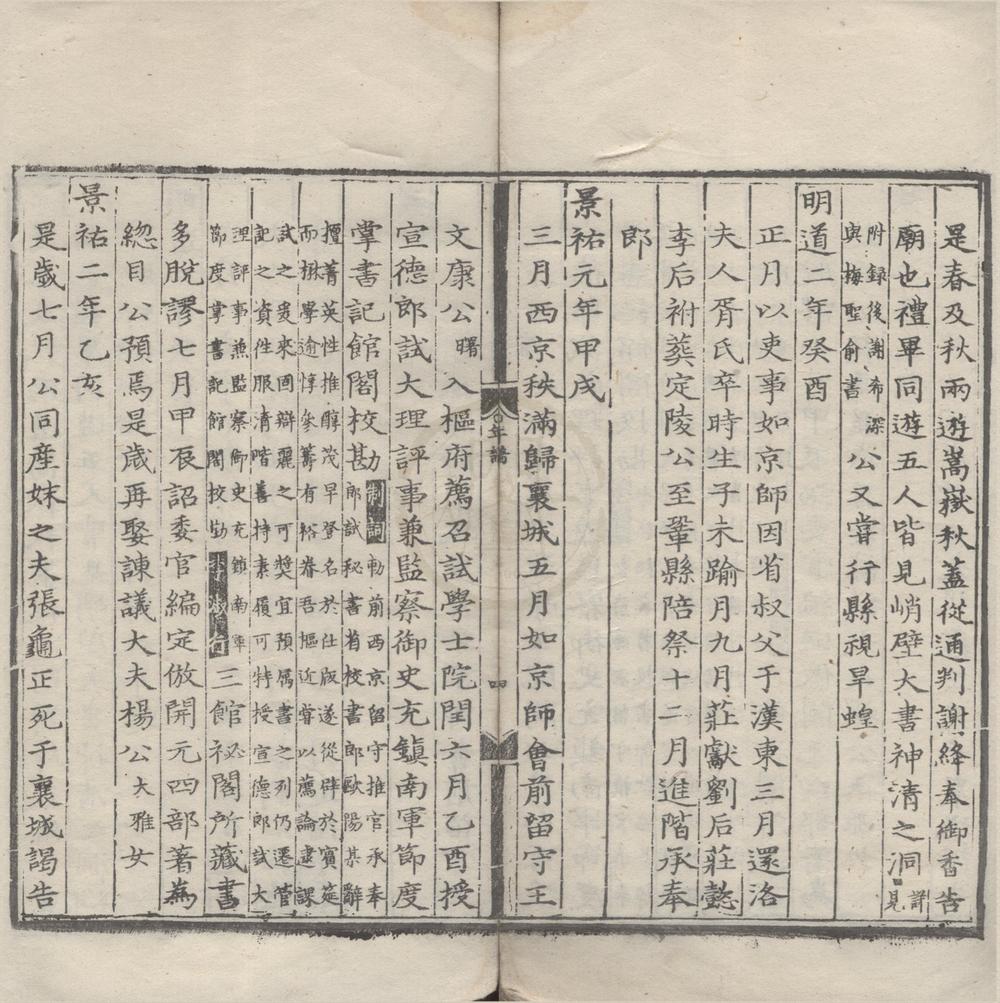 是春及秋兩遊嵩嶽秋蓋從通判謝絳奉御香告
廟也禮畢同遊五人皆見峭壁大書神清之洞詳見
附録後謝希深
與梅聖俞書公又嘗行縣視旱蝗
明道二年癸酉
正月以吏事如京師因省叔父于漢東三月還洛
夫人胥氏卒時生子未踰月九月莊獻劉后莊懿
李后祔葬定陵公至鞏縣陪祭十二月進階承奉
郎
景祐元年甲戌
三月西京秩滿歸襄城五月如京師會前留守王
年譜
四
文康公曙入樞府薦召試學士院閏六月乙酉授
宣德郎試大理評事兼監察御史充鎮南軍節度
掌書記館閣校勘制詞勑前西京留守推官承奉
郎試秘書省校書郎歐陽某辭
擅菁英性推醇茂早登名於仕版遂從辟於賓筵
而楙學逾惇參籌有裕眷吾樞近嘗以薦論逮課
試之爰來固辯麗之可獎宜預属書之列仍遷管
記之資徃服清階善持素履可特授宣德郎試大
理評事兼監察御史充鎮南軍
節度掌書記館閣校勘李淑行三館祕閣所藏書
多脫謬七月甲辰詔委官編定倣開元四部著為
緫目公預焉是歲再娶諫議大夫楊公大雅女
景祐二年乙亥
是歲七月公同産妹之夫張龜正死于襄城謁告